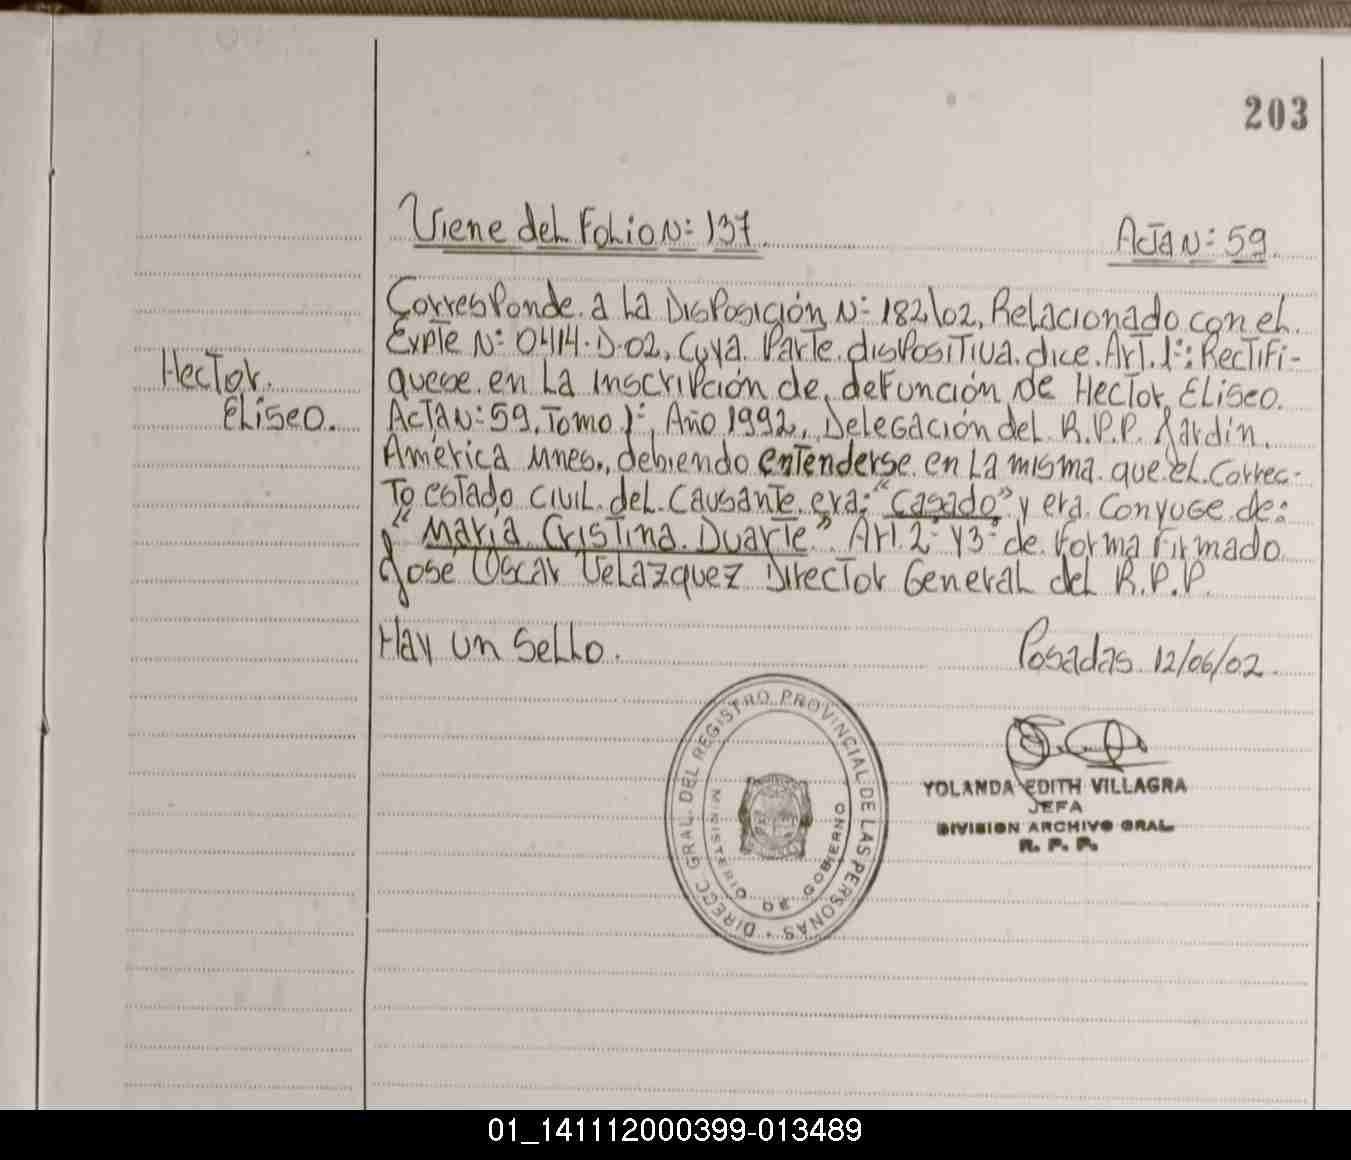 203
Viene del Folio N: 137
Acta N: 59
Corresponde a la Disposición N: 182/02, Relacionado con el
Expte N: 0414-D-02, Cuya Parte dispositiva dice Art. 1º: Rectifi-
Hector
quese en la inscripción de defunción de Hector Eliseo
Eliseo.
Acta N: 59, Tomo 1º, Año 1992, Delegación del R.P.P. Jardín
América Mnes., debiendo entenderse en la misma que el correc-
to estado civil del causante era: "Casado" y era conyuge de:
"María Cristina Duarte" Art. 2º y 3º de forma Firmado
José Oscar Velazquez Director General del R.P.P.
Hay un sello.
Posadas 12/06/02
DIRECC. GRAL. DEL REGISTRO PROVINCIAL DE LAS PERSONAS
MINISTERIO DE GOBIERNO
YOLANDA EDITH VILLAGRA
JEFA
DIVISION ARCHIVO GRAL.
R. P. P.
01_141112000399-013489